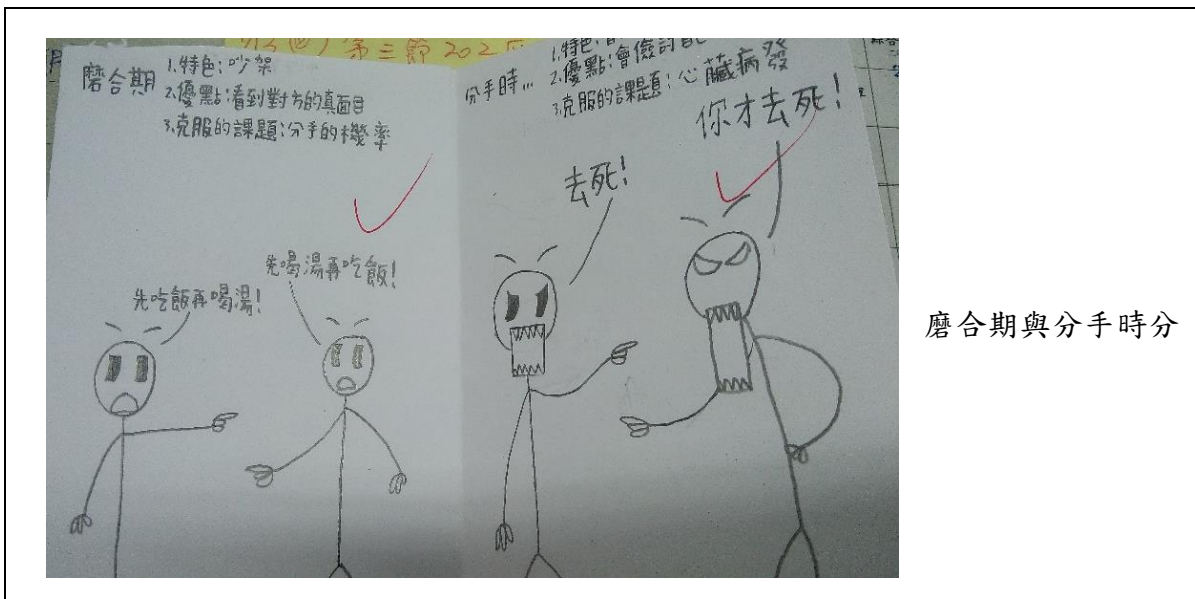 第三節202
磨合期
1.特色:吵架
2.優點:看到對方的真面目
3.克服的課題:分手的機率
先吃飯再喝湯!
先喝湯再吃飯!
分手時...
1.特色:
2.優點:會儉討自己
3.克服的課題:心臟病發
去死!
你才去死!
磨合期與分手時分